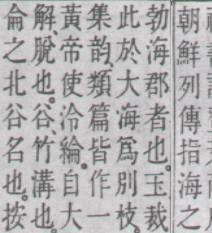 朝鮮列傳指海之
勃海郡者也。玉裁
此於大海爲別枝。
集韵、類篇皆作一
黃帝使泠綸。自大
解脫也。谷、竹溝也。
侖之北谷名也。按